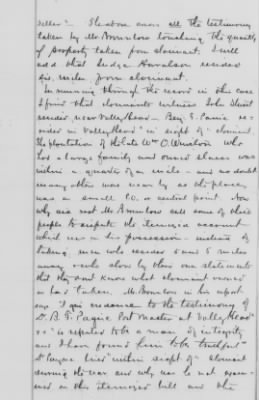 settler? The above covers all the testimony
taken by Mr Brownlow touching the quantity
of property taken from claimant. I will
add that Judge Arvalson resided
six miles from claimant.
In running through the record in this case
I find that claimants witness John
resided near Valley Head - Benj. F. Payne re-
sided in Valley Head in sight of claimant.
The plantation of the late Wm O. Winston who
had a large family and owned slaves was
within a quarter of a mile - and no doubt
many others was near by as the place
was a small P.O. or central point. Now
why did not Mr Brownlow call some of these
people to dispute the itemized account
which was in his possession - instead of
taking men who resided 5 and 6 miles
away - who show by their own statements
that they don't know what claimant owned
or had taken. Mr. Brownlow in his report
says "I give credence to the testimony of
Dr B. F. Payne Post Master at Valley Head"
"is reputed to be a man of integrity
and I have found him to be truthful"
Dr Payne lived within sight of claimant
during the war and why was he not exam-
ined on this itemized bill and the